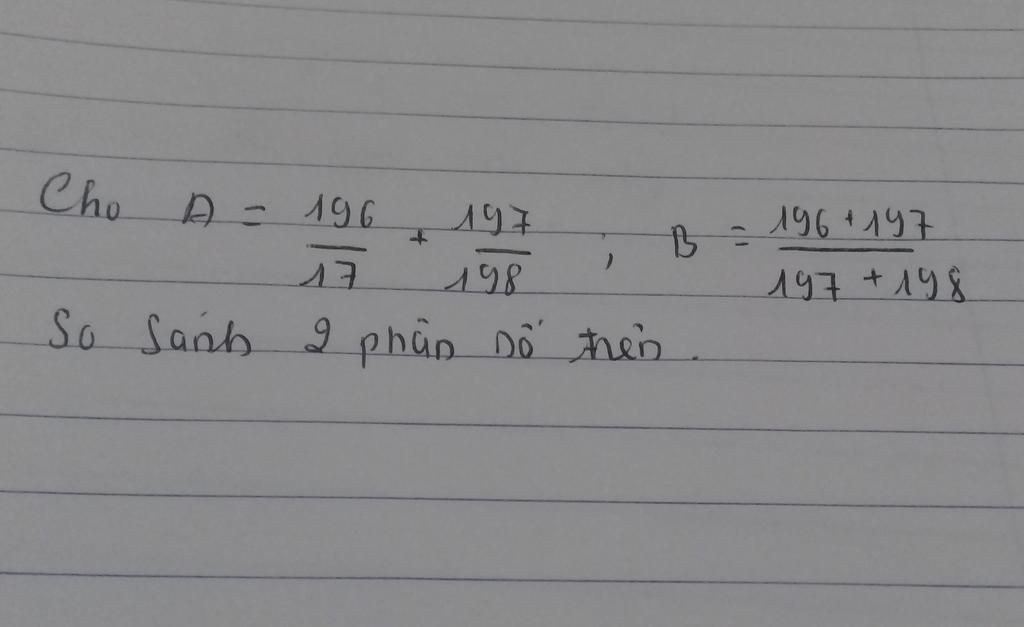 Cho A = 196/17 + 197/198 ; B = 196+197/197+198
So sánh 2 phân số trên.